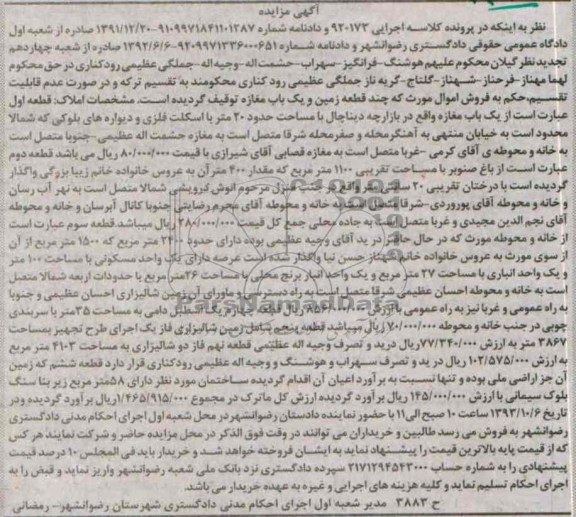 آگهی مزایده
نظر به اینکه در پرونده کلاسه اجرایی ۹۲۰۱۷۳ و دادنامه شماره ۹۱۰۹۹۷۱۸۴۱۱۰۱۳۸۷-۱۳۹۱/۱۲/۲۰ صادره از شعبه اول
دادگاه عمومی حقوقی دادگستری رضوانشهر و دادنامه شماره ۹۲۰۹۹۷۱۳۳۶۰۰۰۶۵۱-۱۳۹۲/۶/۶ صادره از شعبه چهاردهم
تجدید نظر گیلان محکوم علیهم هوشنگ-فرانگیز-سهراب-حشمت اله-وجیه اله-جملگی عظیمی رودکناری در حق محکوم
لهما مهناز-فرحناز-شهناز-گلتاج-گریه ناز جملگی عظیمی رود کناری محکومند به تقسیم ترکه و در صورت عدم قابلیت
تقسیم،حکم به فروش اموال مورث که چند قطعه زمین و یک باب مغازه توقیف گردیده است. مشخصات املاک: قطعه اول
عبارت است از یک باب مغازه واقع در بازارچه دیناچال با مساحت حدود ۲۰ متر با اسکلت فلزی و دیواره های بلوکی که شمالا
محدود است به خیابان منتهی به آهنگرمحله و صفرمحله شرقا متصل است به مغازه حشمت اله عظیمی-جنوبا متصل است
به خانه و محوطه ی آقای کرمی -غربا متصل است به مغازه قصابی آقای شیرازی با قیمت ۸۰/۰۰۰/۰۰۰ ریال می باشد قطعه دوم
عبارت است از باغ صنوبر با مساحت تقریبی ۱۱۰۰ متر مربع که مقدار ۴۰۰ متر آن به عروس خانواده خانم زیبا بزرگی واگذار
گردیده است با درختان تقریبی ۲۰ سانتی متر واقع در جنب منزل مرحوم انوش کرویشی شمالا متصل است به نهر آب رسان
و خانه و محوطه آقای پوروردی-شرقا متصل است به خانه و محوطه آقای محرم رضایتی جنوبا کانال آبرسان و خانه و محوطه
آقای نجم الدین مجیدی و غربا متصل است به جاده محلی جمع کل قیمت ۲۸۰/۰۰۰/۰۰۰ ریال میباشد قطعه سوم عبارت است
از خانه و محوطه مورث که در حال حاضر در ید آقای وجیه عظیمی بوده دارای حدود ۲۴۰۰ متر مربع که ۱۵۰۰ متر مربع از آن
از سوی مورث به عروس خانواده خانم شهناز حسن نیا واگذار شده است عرصه دارای یک واحد مسکونی با مساحت ۱۰۰ متر
و یک واحد انباری با مساحت ۲۷ متر مربع و یک واحد انبار برنج محلی با مساحت ۳۶متر مربع با حدودات اربعه شمالا متصل
است به خانه و محوطه احسان عظیمی شرقا متصل است به راه دسترسی و ماورای آن زمین شالیزاری احسان عظیمی و جنوبا
به راه عمومی و غربا نیز به راه عمومی با ارزش ریال قطعه چهارم یک اصطبل دامی به مساحت ۳۵متر با سربندی
چوبی در جنب خانه و محوطه ۷۰/۰۰۰/۰۰۰ ریال میباشد قطعه پنجم شامل زمین شالیزاری فاز یک اجرای طرح تجهیز بمساحت
۳۸۶۷ متر به ارزش ۷۷/۳۴۰/۰۰۰ریال در ید و تصرف وجیه اله عظیمی قطعه نهم فاز دو شالیزاری به مساحت ۴۱۰۳ متر مربع
به ارزش ۱۰۲/۵۷۵/۰۰۰ ریال در ید و تصرف سهراب و هوشنگ و وجیه اله عظیمی رودکناری قرار دارد قطعه ششم که زمین
آن جز اراضی ملی بوده و تنها نسبت به برآورد اعیان آن اقدام گردیده ساختمان مورد نظر دارای ۵۸متر مربع زیر بنا سنگ
بلوک سیمانی با ارزش ۱۴۵/۰۰۰/۰۰۰ ریال برآورد گردیده ارزش کل ماترک در مجموع ۱/۴۶۵/۹۱۵/۰۰۰ریال برآورد گردیده ودر
تاریخ ۱۳۹۳/۱۰/۶ ساعت ۱۰ صبح الی۱۱ با حضور نماینده دادستان رضوانشهر در محل شعبه اول اجرای احکام مدنی دادگستری
رضوانشهر به فروش می رسد طالبین و خریداران می توانند در وقت فوق الذکر در محل مزایده حاضر و شرکت نمایند هر کس
که از قیمت پایه بالاترین قیمت را پیشنهاد نماید به ایشان فروخته خواهد شد و خریدار باید فی المجلس ۱۰ درصد قیمت
پیشنهادی را به شماره حساب ۲۱۷۱۲۹۴۵۴۳۰۰۰ سپرده دادگستری نزد بانک ملی شعبه رضوانشهر واریز نماید و قبض را به
اجرای احکام تسلیم نماید و کلیه هزینه های اجرایی و غیره به عهده خریدار می باشد.
ح ۳۸۸۳ مدیر شعبه اول اجرای احکام مدنی دادگستری شهرستان رضوانشهر- رمضانی